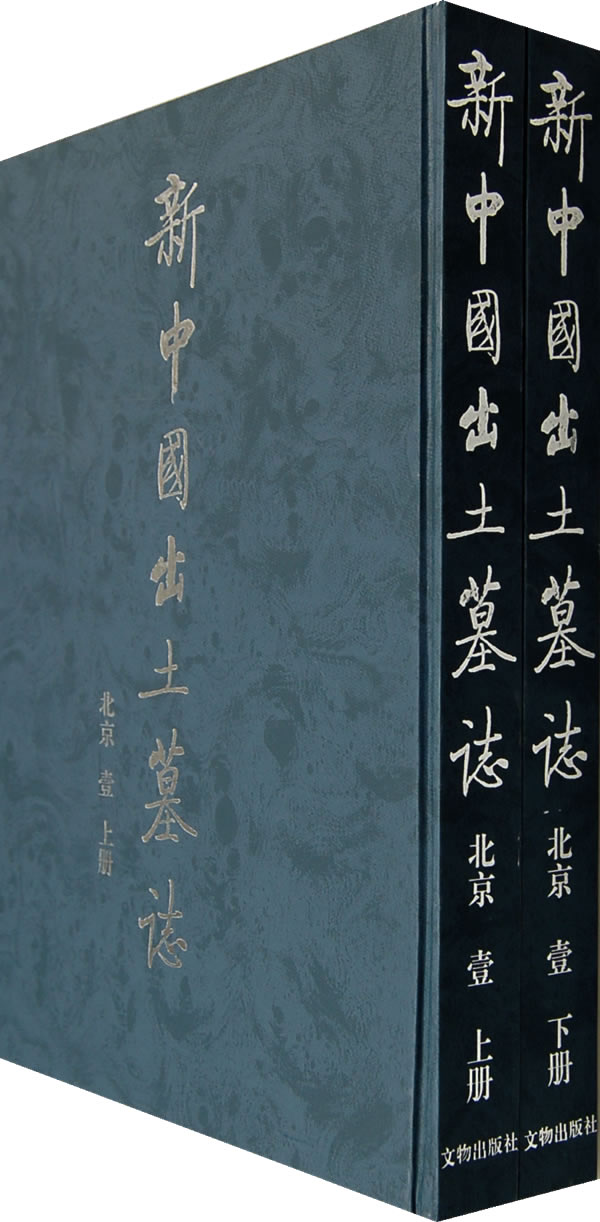 新中國出土墓誌
北京 壹 上册
新中國出土墓誌
北京 壹 上册
文物出版社
新中國出土墓誌
北京 壹 下册
文物出版社